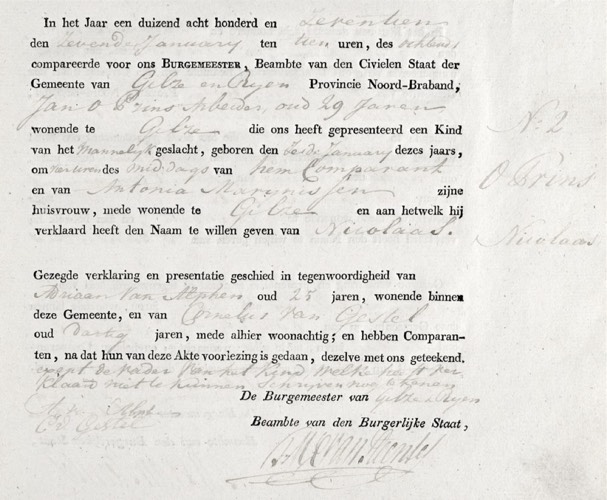 In het Jaar een duizend acht honderd en zeventien
den Zevende January ten tien uren, des ochtends
compareerde voor ons BURGEMEESTER, Beambte van den Civielen Staat der
Gemeente van Gilze en Ryen Provincie Noord-Braband,
Jan O Prins Arbeider, oud 29 Jaren
wonende te Gilze die ons heeft gepresenteerd een Kind
van het Mannelyk geslacht, geboren den January dezes jaars,
om uren des middags van hem Comparant
en van Antonia Marynissen zijne
huisvrouw, mede wonende te Gilze en aan hetwelk hij
verklaard heeft den Naam te willen geven van Nicolaas.
Nº: 2
O Prins
Nicolaas
Gezegde verklaring en presentatie geschied in tegenwoordigheid van
Adriaan van Alphen oud 25 jaren, wonende binnen
deze Gemeente, en van Cornelius van Gestel
oud Dartig jaren, mede alhier woonachtig; en hebben Comparan-
ten, na dat hun van deze Akte voorlezing is gedaan, dezelve met ons geteekend.
exept de vader van het kind welke heeft ver
klaard niet te kunnen schryven nog tekenen
De Burgemeester van Gilze en Ryen
Beambte van den Burgerlijke Staat,